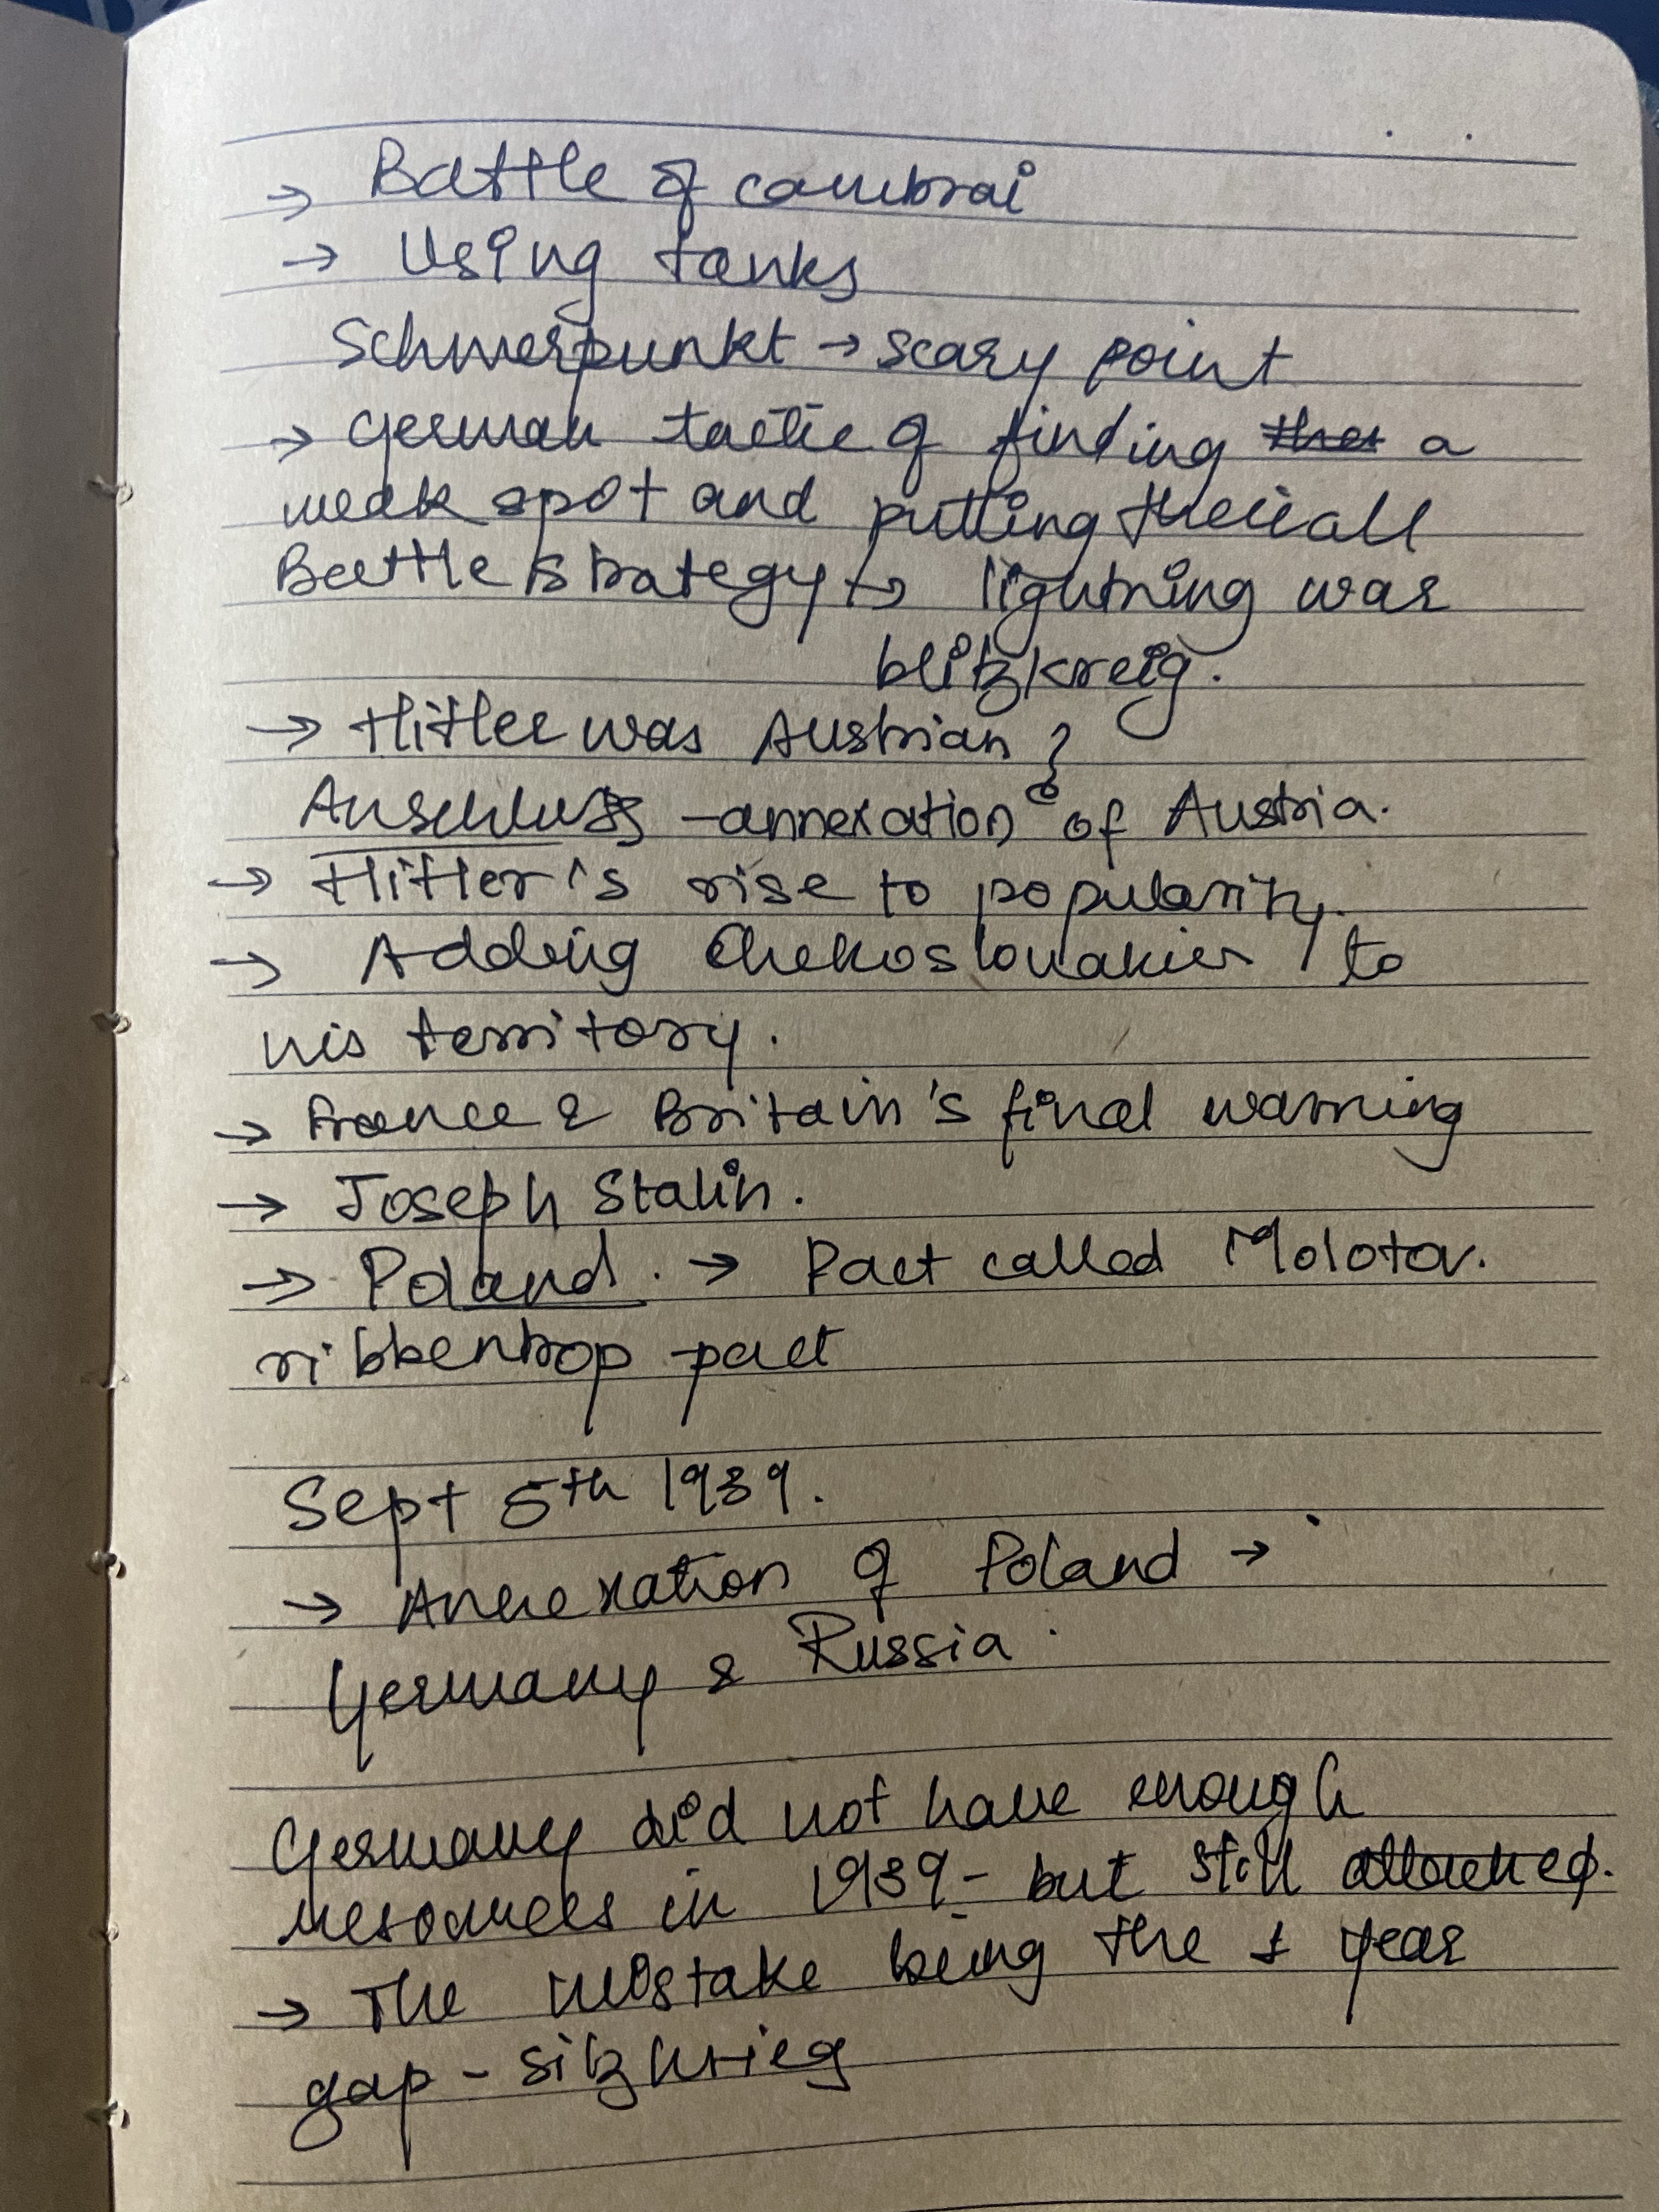 → Battle of cambrai
→ Using tanks
Schwerpunkt → scary point
→ German tactic of finding a
weak spot and putting their all
Battle strategy → lightning war
blitzkreig.
→ Hitler was Austrian ?
Anschluss - annexation of Austria.
→ Hitler's rise to popularity.
→ Adding Chekoslovakia to
his territory.
→ France & Britain's final warning
→ Joseph Stalin.
→ Poland. → Pact called Molotov.
ribbentrop pact
Sept 5th 1939.
→ Annexation of Poland →
Germany & Russia.
Germany did not have enough
resources in 1939 - but still attacked.
→ The mistake being the 1 year
gap - sitzkrieg